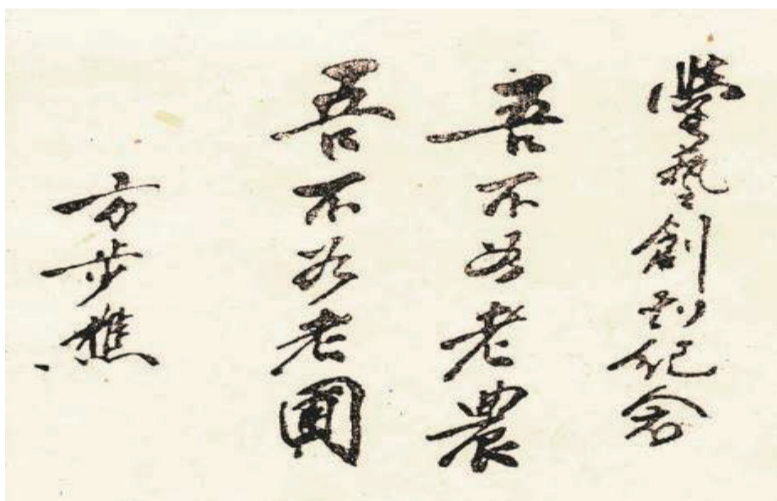 學藝創刊紀念
吾不如老農
吾不如老圃
方步樵